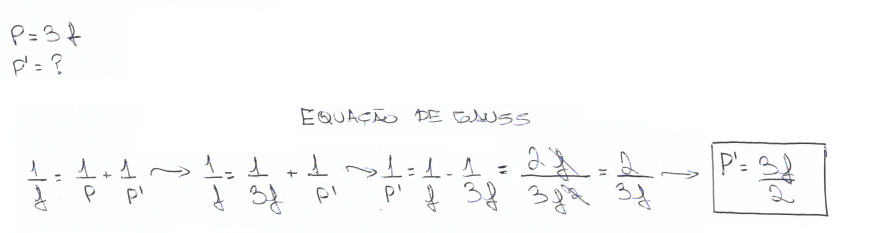 P = 3f
P' = ?
EQUAÇÃO DE GAUSS
1/f = 1/P + 1/P' → 1/f = 1/3f + 1/P' → 1/P' = 1/f - 1/3f = 2f/3f² = 2/3f → P' = 3f/2